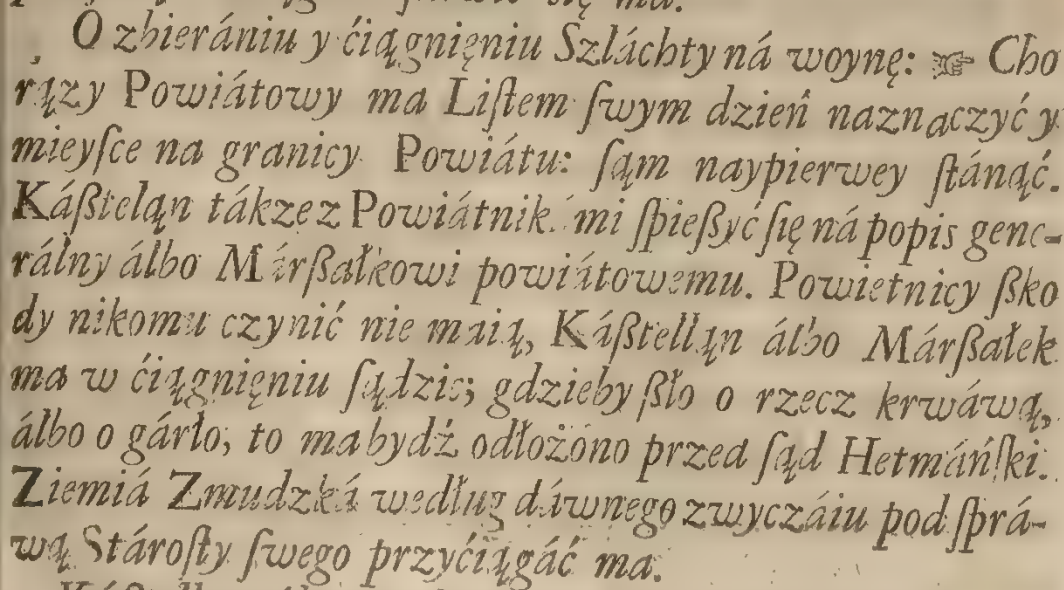 O zbierániu y ćiągnięniu Szláchty ná woynę: ☞ Cho
rązy Powiátowy ma Liſtem ſwym dzień naznaczyć y
mieyſce na granicy Powiátu: ſąm naypierwey ſtánąć.
Káßteląn tákze z Powiátnikámi ſpießyć ſię ná popis gene-
rálny álbo Márßałkowi powiátowemu. Powietnicy ßko
dy nikomu czynić nie maią, Káßtelląn álbo Márßałek
ma w ćiągnięniu ſądzic; gdzieby ßło o rzecz krwáwą,
álbo o gárło, to ma bydź odłożono przed ſąd Hetmáńſki.
Ziemiá Zmudzká według dáwnego zwyczáiu pod ſprá-
wą Stároſty ſwego przyćiągáć ma.